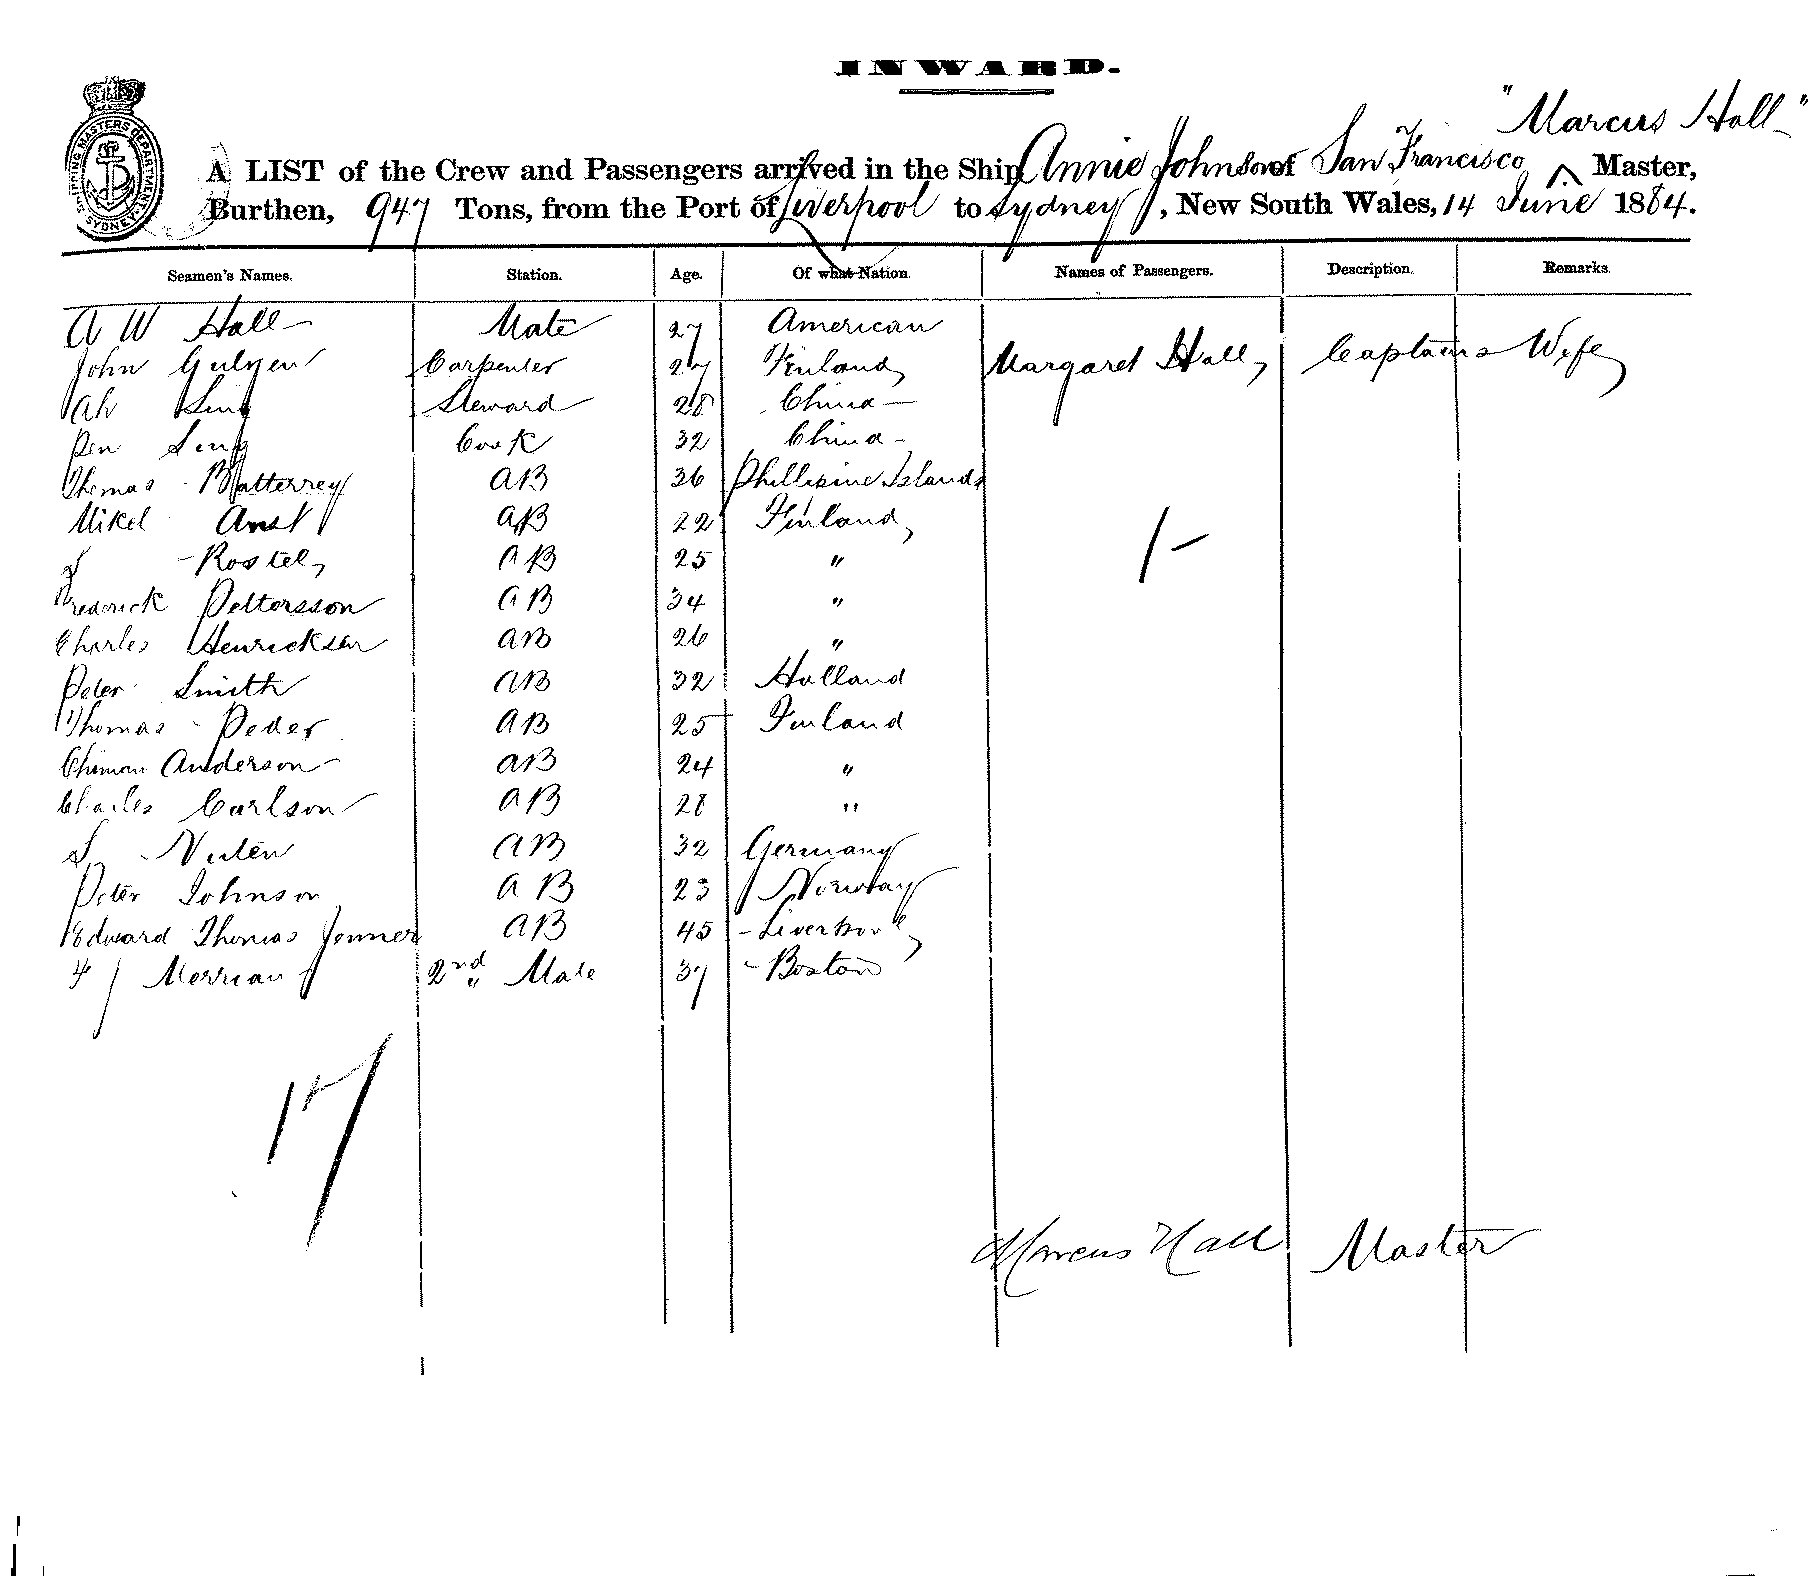 INWARD.
"Marcus Hall"
A LIST of the Crew and Passengers arrived in the Ship Annie Johnson of San Francisco ^ Master,
Burthen, 947 Tons, from the Port of Liverpool to Sydney, New South Wales, 14 June 1884.
SHIPPING MASTERS DEPARTMENT SYDNEY
Seamen's Names. Station. Age. Of what Nation. Names of Passengers. Description. Remarks.
A W Hall Mate 27 American
John Carpenter 27 Finland Margaret Hall Captains Wife
Ah Sing Steward 28 China
Pen Sing Cook 32 China
Thomas Batterrey AB 36 Phillipine Islands
Mikel Anst AB 22 Finland
Rostel AB 25 "
Frederick Pettersson AB 34 "
Charles Henricksen AB 26 "
Peter Smith AB 32 Holland
Thomas Peder AB 25 Finland
Anderson AB 24 "
Charles Carlson AB 28 "
AB 32 Germany
Peter Johnson AB 23 Norway
Edward Thomas Jenner AB 45 Liverpool
Merriam 2nd Mate 37 Boston
1-
17
Marcus Hall Master